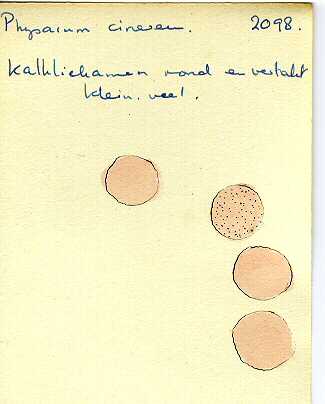 Physarum cinereum. 2098.
Kalklichamen rond en vertakt
klein. veel.